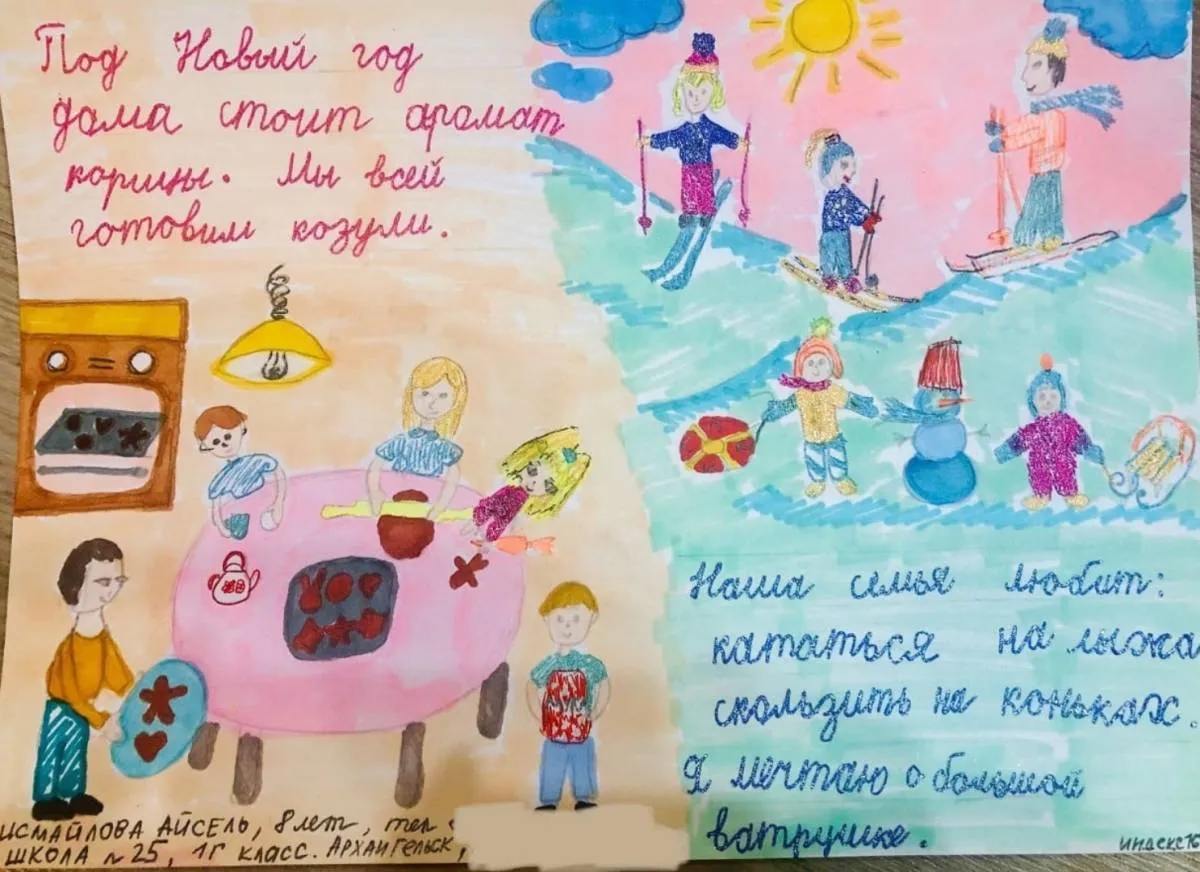 Под Новый год
дома стоит аромат
корицы. Мы всей
готовим козули.
Наша семья любит:
кататься на лыжа
скользить на коньках.
Я мечтаю о большой
ватрушке.
ИСМАЙЛОВА АЙСЕЛЬ, 8 лет, тел
ШКОЛА №25, 1Г КЛАСС. АРХАНГЕЛЬСК,
индекс 16